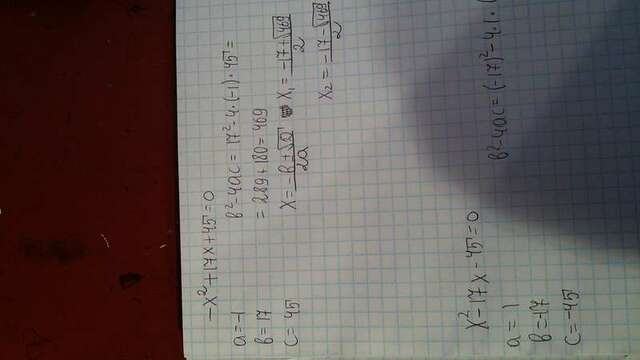 -x²+17x+45=0
a=-1
b=17
c=45
b²-4ac=17²-4·(-1)·45=
=289+180=469
x=(-b±√D)/2a
x₁=(-17+√469)/2
x₂=(-17-√469)/2
x²-17x-45=0
a=1
b=-17
c=-45
b²-4ac=(-17)²-4·1·(